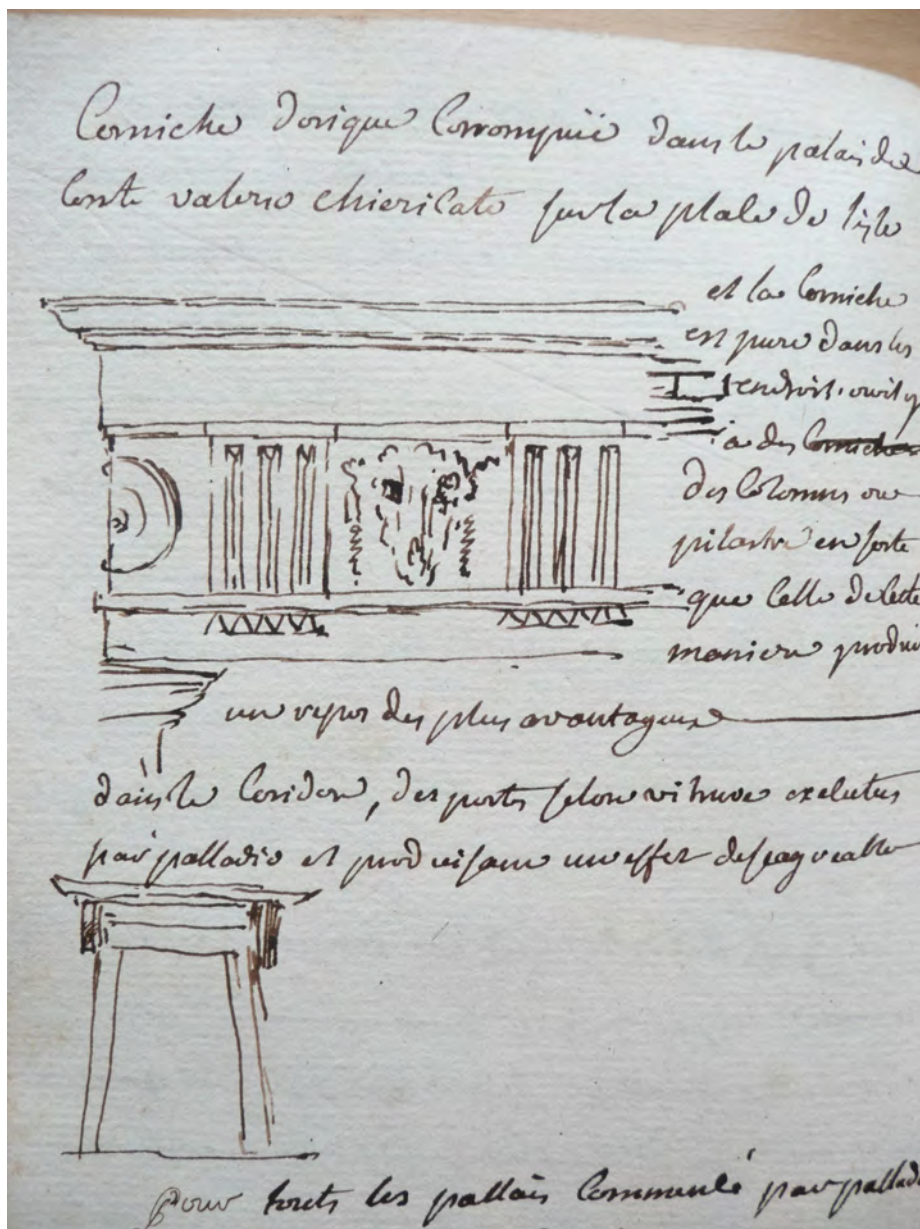 Corniche dorique Corrompuë dans le palais de
Conte valerio chiericato sur la place de l'isle
et la Corniche
est pure dans les
endroit. ou il y
a des Corniches
des Colonnes ou
pilastre en sorte
que Celle de Cette
maniere produi
un repos des plus avantageux
dans le Coridor, des portes selon vitruve executés
par palladio et produisant un effet desagreable
pour touts les pallais Commencé par pallad